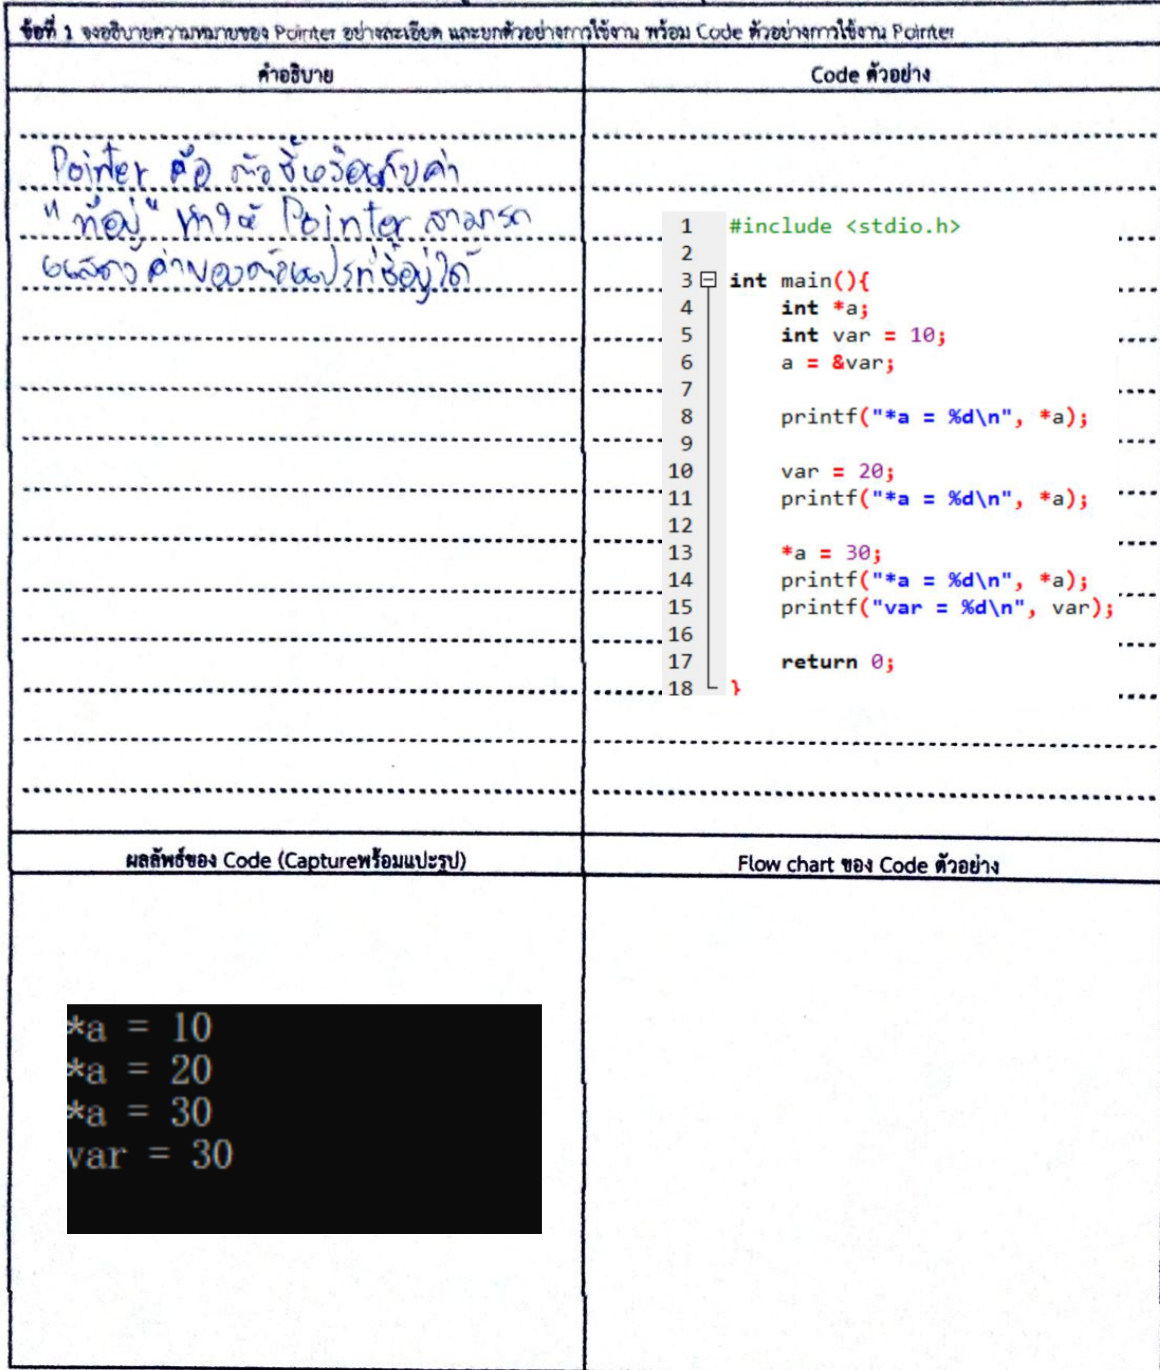 ข้อที่ 1 จงอธิบายความหมายของ Pointer อย่างละเอียด และยกตัวอย่างการใช้งาน พร้อม Code ตัวอย่างการใช้งาน Pointer
คำอธิบาย
Pointer คือ ตัวชี้หรือเก็บค่า
"ที่อยู่" ทำให้ Pointer สามารถ
แสดงค่าของตัวแปรที่ชี้อยู่ได้
Code ตัวอย่าง
1 #include <stdio.h>
2
3 int main(){
4 int *a;
5 int var = 10;
6 a = &var;
7
8 printf("*a = %d\n", *a);
9
10 var = 20;
11 printf("*a = %d\n", *a);
12
13 *a = 30;
14 printf("*a = %d\n", *a);
15 printf("var = %d\n", var);
16
17 return 0;
18 }
ผลลัพธ์ของ Code (Captureพร้อมแปะรูป)
*a = 10
*a = 20
*a = 30
var = 30
Flow chart ของ Code ตัวอย่าง